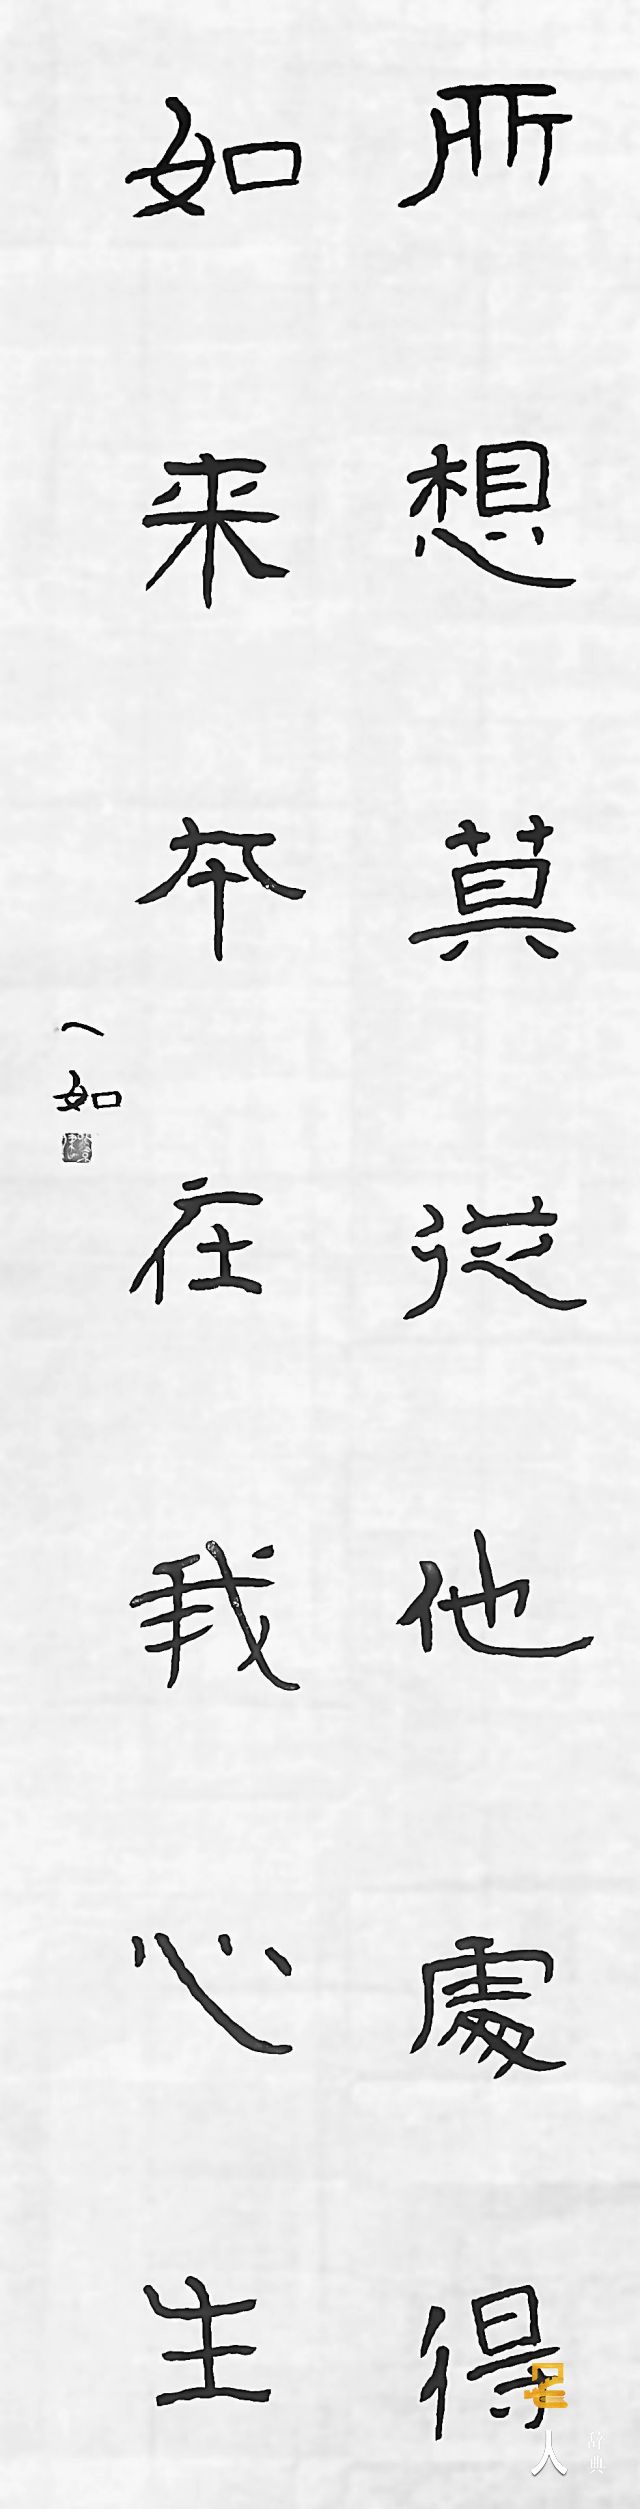 所想莫從他處得
如来本在我心生
一如
名人
辞典